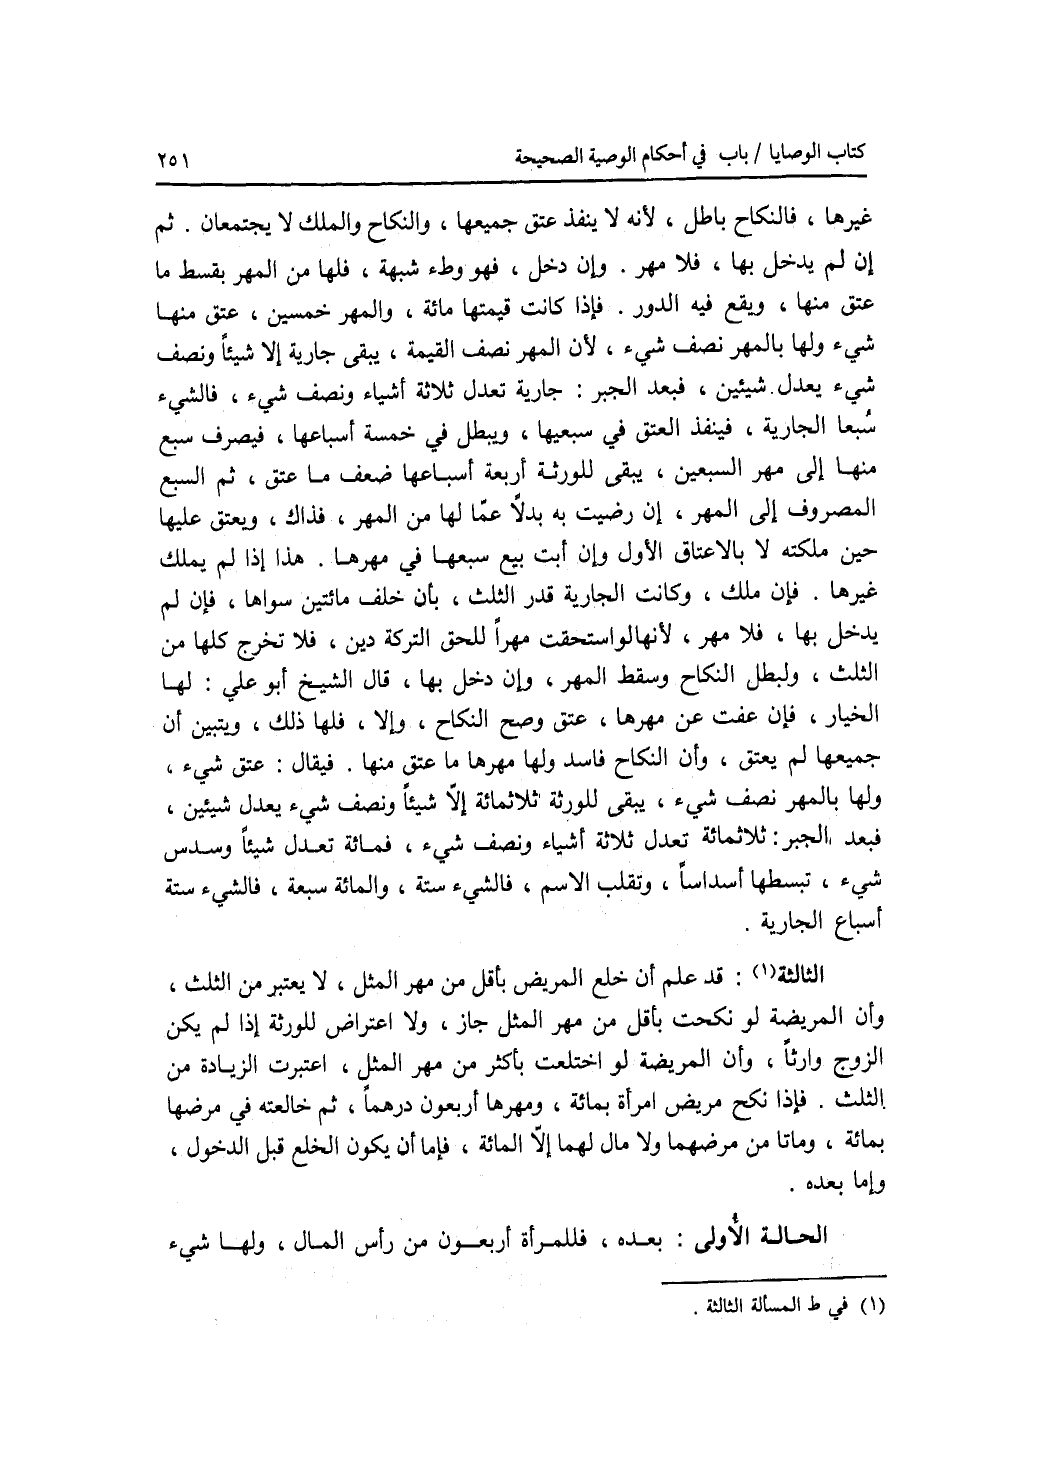 كتاب الوصايا / باب في أحكام الوصية الصحيحة ٢٥١
غيرها ، فالنكاح باطل ، لأنه لا ينفذ عتق جميعها ، والنكاح والملك لا يجتمعان . ثم
إن لم يدخل بها ، فلا مهر . وإن دخل ، فهو وطء شبهة ، فلها من المهر بقسط ما
عتق منها ، ويقع فيه الدور . فإذا كانت قيمتها مائة ، والمهر خمسين ، عتق منها
شيء ولها بالمهر نصف شيء ، لأن المهر نصف القيمة ، يبقى جارية إلا شيئاً ونصف
شيء يعدل شيئين ، فبعد الجبر : جارية تعدل ثلاثة أشياء ونصف شيء ، فالشيء
سُبعا الجارية ، فينفذ العتق في سبعيها ، ويبطل في خمسة أسباعها ، فيصرف سبع
منها إلى مهر السبعين ، يبقى للورثة أربعة أسباعها ضعف ما عتق ، ثم السبع
المصروف إلى المهر ، إن رضيت به بدلاً عمّا لها من المهر ، فذاك ، ويعتق عليها
حين ملكته لا بالاعتاق الأول وإن أبت بيع سبعها في مهرها . هذا إذا لم يملك
غيرها . فإن ملك ، وكانت الجارية قدر الثلث ، بأن خلف مائتين سواها ، فإن لم
يدخل بها ، فلا مهر ، لأنهالواستحقت مهراً للحق التركة دين ، فلا تخرج كلها من
الثلث ، ولبطل النكاح وسقط المهر ، وإن دخل بها ، قال الشيخ أبو علي : لها
الخيار ، فإن عفت عن مهرها ، عتق وصح النكاح ، وإلا ، فلها ذلك ، ويتبين أن
جميعها لم يعتق ، وأن النكاح فاسد ولها مهرها ما عتق منها . فيقال : عتق شيء ،
ولها بالمهر نصف شيء ، يبقى للورثة ثلاثمائة إلاّ شيئاً ونصف شيء يعدل شيئين ،
فبعد الجبر : ثلاثمائة تعدل ثلاثة أشياء ونصف شيء ، فمائة تعدل شيئاً وسدس
شيء ، تبسطها أسداساً ، وتقلب الاسم ، فالشيء ستة ، والمائة سبعة ، فالشيء ستة
أسباع الجارية .
الثالثة(١) : قد علم أن خلع المريض بأقل من مهر المثل ، لا يعتبر من الثلث ،
وأن المريضة لو نكحت بأقل من مهر المثل جاز ، ولا اعتراض للورثة إذا لم يكن
الزوج وارثاً ، وأن المريضة لو اختلعت بأكثر من مهر المثل ، اعتبرت الزيادة من
الثلث . فإذا نكح مريض امرأة بمائة ، ومهرها أربعون درهماً ، ثم خالعته في مرضها
بمائة ، وماتا من مرضهما ولا مال لهما إلاّ المائة ، فإما أن يكون الخلع قبل الدخول ،
وإما بعده .
الحالة الأولى : بعده ، فللمرأة أربعون من رأس المال ، ولها شيء
(١) في ط المسألة الثالثة .